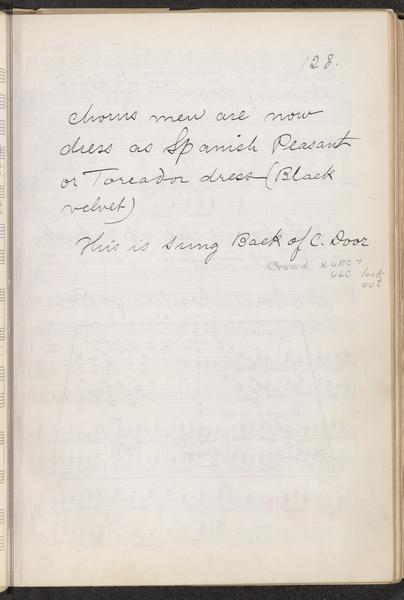 128.
chorus men are now
dress as Spanish Peasant
or Toreador dress (Black
velvet)
This is sung Back of C. Door
Crowd X URC +
ULC look
out